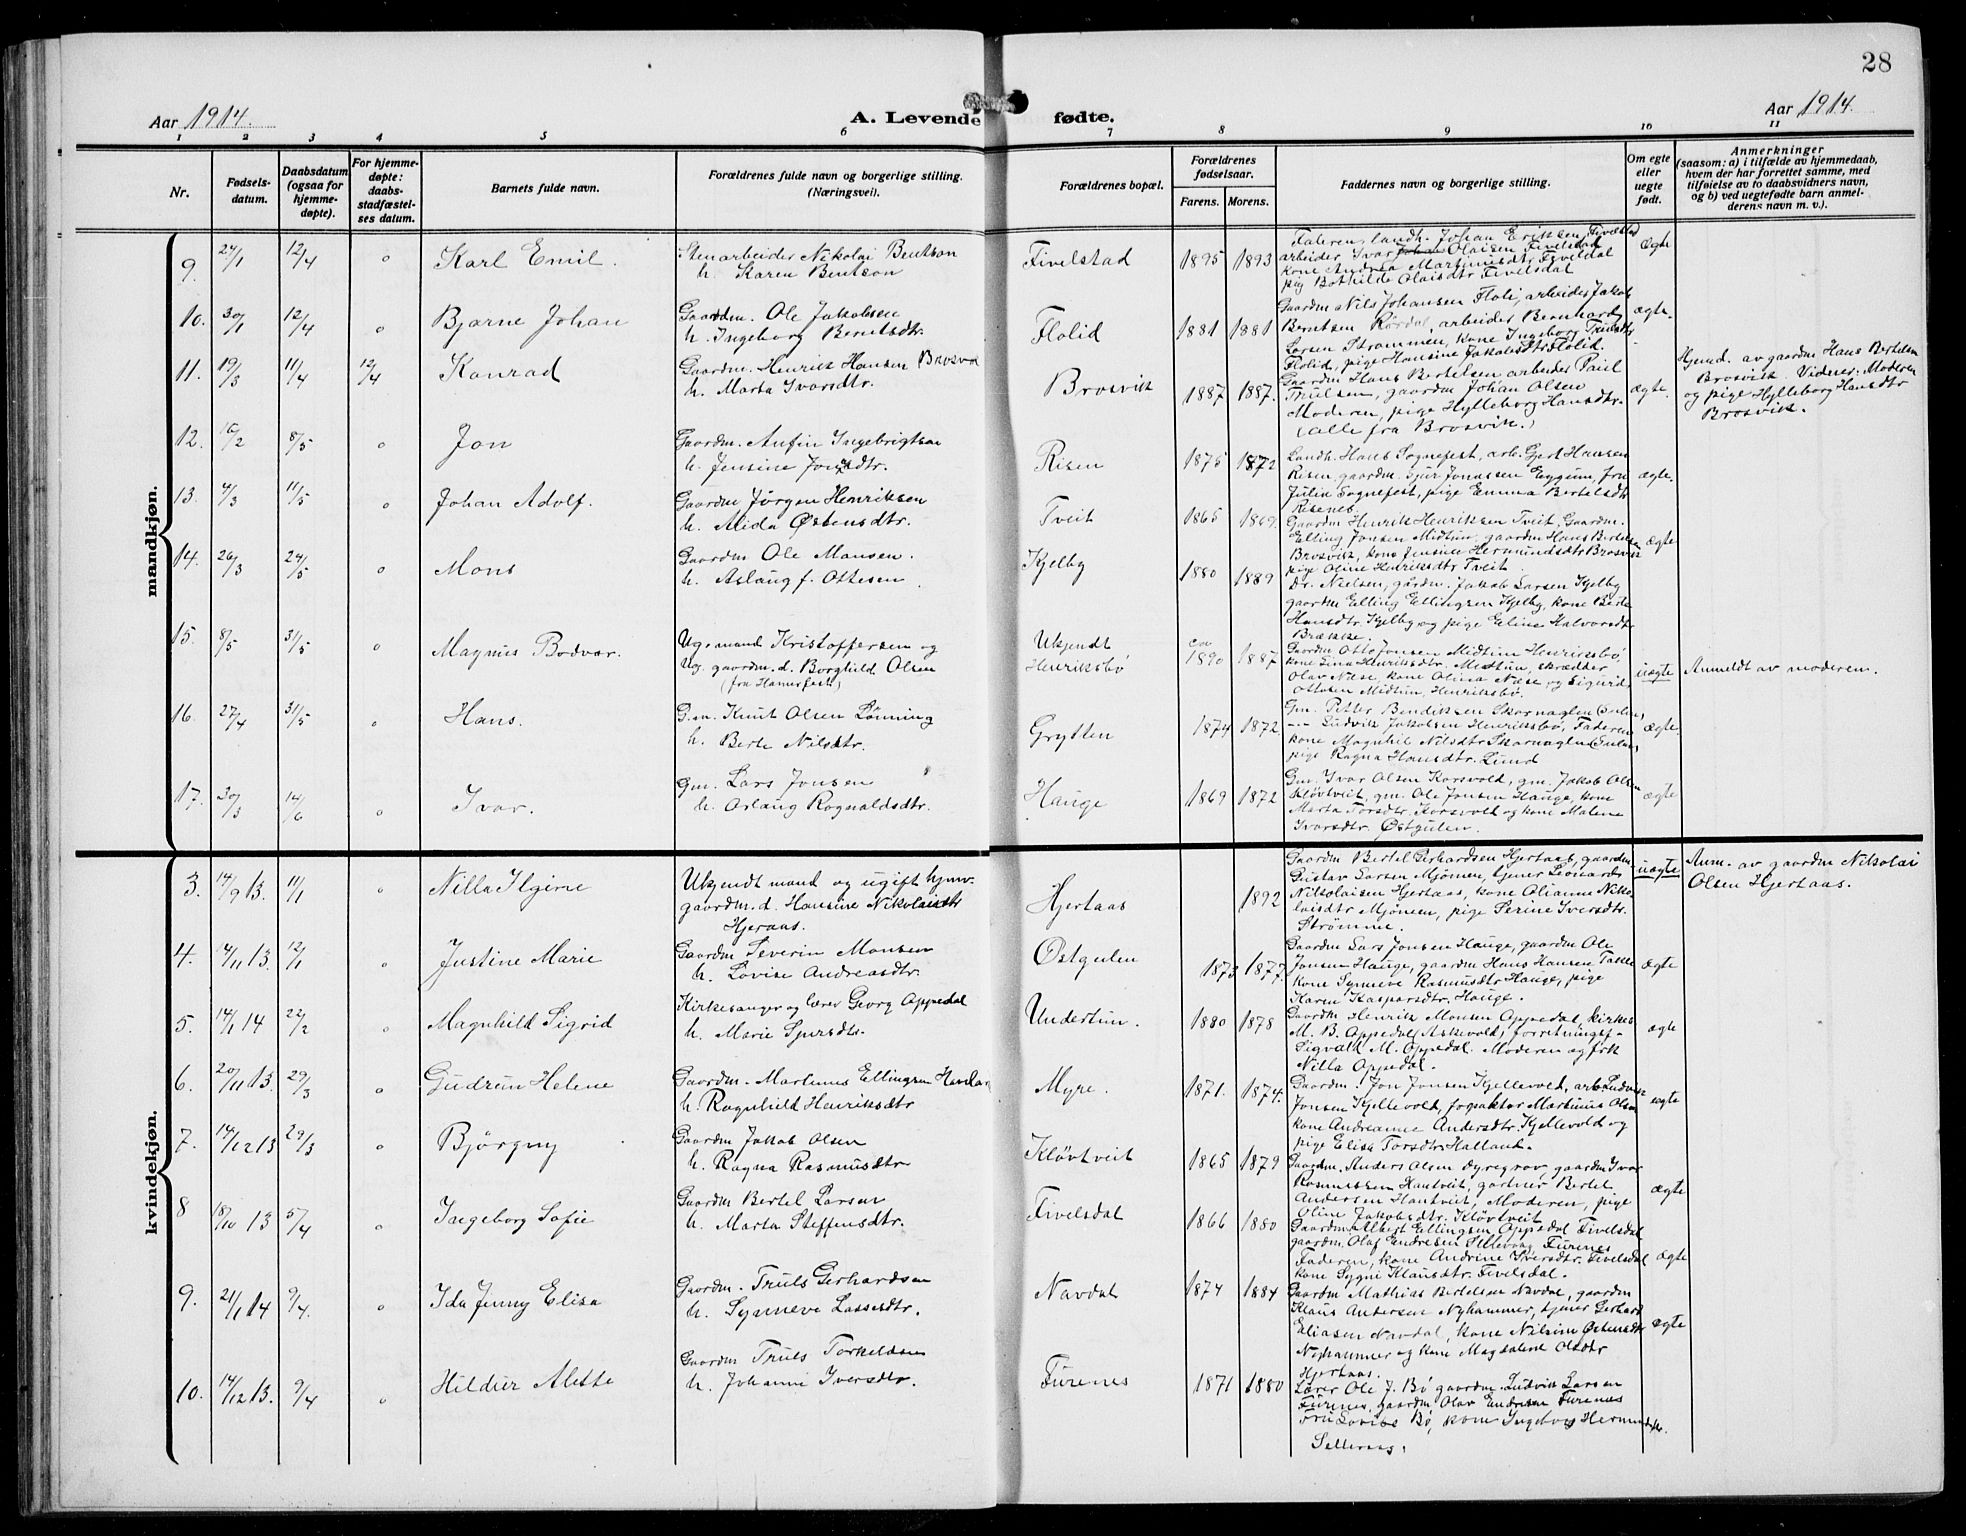 28
Aar 1914.
A. Levende fødte.
Aar 1914.
1 2 3 4 5 6 7 8 9 10 11
Nr.
Fødsels-
datum.
Daabsdatum
(ogsaa for
hjemme-
døpte).
For hjemme-
døpte:
daabs-
stadfæstel-
ses datum.
Barnets fulde navn.
Forældrenes fulde navn og borgerlige stilling.
(Næringsvei).
Forældrenes bopæl.
Forældrenes
fødselsaar.
Farens. Morens.
Faddernes navn og borgerlige stilling.
Om egte
eller
uegte
født.
Anmerkninger
(saasom: a) i tilfælde av hjemmedaab,
hvem der har forrettet samme, med
tilføielse av to daabsvidners navn,
og b) ved uegtefødte barn anmel-
derens navn m. v.).
mandkjøn.
9. 24/1 12/4 " Karl Emil.
Stenarbeider Nikolai Bentson
h. Karen Bentson
Fivelstad 1895 1893
Faderen, landh. Johan Eriksen (Fivelstad)
arbeider Ivar Olaisen Fivelstad
kone Andrea Martinusdtr Fiveldal
pig Bothilde Olaisdtr Fivelsdal
ægte
10. 30/1 12/4 " Bjarne Johan
Gaardm. Ole Jakobsen
h. Ingeborg Berntsdtr.
Flolid 1881 1881
Gaardm Nils Johansen Floli, arbeider Jakob
Berntsen Rørdal, arbeider Bernhard
Larsen Strømmen, kone Ingeborg
Flolid, pige Hansine Jakobsdtr Flolid.
ægte.
11. 19/3 11/4 12/4 Konrad
Gaardm. Henrik Hansen Brosvik
h. Marta Ivarsdtr.
Brosvik 1887 1887.
Gaardm Hans Bertelsen arbeider Paul
Trulsen, gaardm Johan Olsen
Moderen, pige Hylleborg Hansdtr.
(alle fra Brosvik.)
ægte.
Hjemd. av gaardm Hans Bertelsen
Brosvik. Vidner: Moderen
og pige Hylleborg Hansdtr
Brosvik.
12. 16/2 8/5 " Jon
Gaardm. Anfin Ingebrigtsen
h. Jensine Jonsdtr.
Risen 1875 1872
Landh. Hans Sognefest, arb. Gjert Hansen
Risen, gaardm Sjur Jonassen Eggum, fru
Julia Sognefest, pige Emma Bertelsdtr
Risenes.
ægte.
13. 4/3 11/5 " Johan Adolf.
Gaardm Jörgen Henriksen
h. Alida Østensdtr.
Tveit 1865 1869.
Gaardm Henrik Henriksen Tveit, Gaardm.
Elling Jonsen Midtun, gaardm Hans Bertelsen
Brosvik, kone Jensine Hermundsdtr Brosvik
pige Oline Henriksdtr Tveit.
ægte
14. 26/3 24/5 " Mons
Gaardm Ole Monsen.
h. Aslaug f. Ottesen
Kjelby 1880 1889
Dr. Nielsen, gårdm. Jakob Larsen Kjelby
gaardm Elling Ellingsen Kjelby, kone Berte
Hansdtr Kjelby, og pige Eline Halvorsdtr
Brække.
15. 8/5 31/5 " Magnus Bodvar.
Ug. mand Kristoffersen og
Ug. gaardm. d. Borghild Olsen
(fra Hamerfest)
Ukjendt
Henriksbø
ca 1890 1887
Gaardm Otto Jonsen Midtun Henriksbø,
kone Lina Henriksdtr. Midtun, skrædder
Olav Næse, kone Olina Næse og Sigurd
Ottosen Midtun, Henriksbø.
uægte
Anmeldt av moderen.
16. 27/4 31/5 " Hans.
G.m. Knut Olsen Lönning
h. Berte Nilsdtr.
Grytten 1874 1872
Gm. Petter Bendiksen Skornaglen (Sulen)
-- Ludvik Jakobsen Henriksbø, Faderen
kone Magnhil Nilsdtr Skarnaglen (Sulen)
pige Ragna Hansdtr. Lund
ægte.
17. 30/3 14/6 " Ivar.
Gm. Lars Jonsen
h. Aslaug Rognaldsdtr.
Hauge 1869 1872
Gm. Ivar Olsen Korsvold, gm. Jakob Olsen
Kløvtveit, gm. Ole Jonsen Hauge, kone
Marta Torsdtr. Korsvold og kone Malene
Ivarsdtr. Østgulen.
ægte
kvindekjøn.
3. 14/9 13. 11/1 " Nilla Ilgine
Ukjendt mand og ugift hjmv.
gaardm. d. Hansine Nikolaisdtr
Hjeraas.
Hjertaas 1892
Gaardm Bertel Gerhardsen Hjertaas, gaardm
Gustav Larsen Mjömen, tjener Leonard
Nilkolaisen Hjertaas, kone Olianne Niko-
laisdtr Mjömen, pige Serine Iversdtr.
Strömme.
uægte
Anm. av gaardm Nikolai
Olsen Hjertaas.
4. 14/11 13. 12/1 " Justine Marie
Gaardm Severin Monsen
h. Lovise Andreasdtr.
Østgulen 1873 1877.
Gaardm Lars Jonsen Hauge, gaardm Ole
Jonsen Hauge, gaardm Hans Hansen Takle
kone Synneve Rasmusdtr Hauge, pige
Karen Kasparsdtr. Hauge.
ægte
5. 14/1 14 22/2 " Magnhild Sigrid
Kirkesanger og lærer Georg Appedal
h. Marie Sjursdtr.
Undertun. 1880 1878
Gaardm Henrik Monsen Oppedal, kirkes
M. B. Oppedal (Askevold), forretningsf-
Sigvald M. Oppedal. Moderen og frk
Nilla Oppedal.
ægte
6. 20/11 13. 29/3 " Gudrun Helene
Gaardm. Martinus Ellingsen Haveland
h. Ragnhild Henriksdtr
Myre. 1871. 1874.
Gaardm. Jon Jonsen Kjellevold, arb Ludvik
Jonsen Kjellevold, fogsaktør Martinus Olsen
kone Andreanne Andersdtr Kjellevold og
pige Elisa Torsdtr Halland.
ægte
7. 14/12 13 29/3 " Bjørgny
Gaardm Jakob Olsen
h. Ragna Rasmusdtr
Kløvtveit 1865 1879
Gaardm. Anders Olsen Dyregrov, gaardm Ivar
Rasmussen Hantveit, gartner Bertel
Andersen Hantveit, Moderen, pige
Oline Jakobsdtr. Kløvtveit
ægte
8 18/10 13 5/4 " Ingeborg Sofie
Gaardm Bertel Larsen
h. Marta Steffensdtr.
Fivelsdal 1866 1880
Gaardm Albert Ellingsen Oppedal Fivelsdal
gaardm. Olaf Endresen Sellevaag, Furenes
Faderen, kone Andrine Iversdtr. Fivelsdal
kone Sygni Klausdtr. Fivelsdal.
ægte
9. 21/1 14 9/4. " Ida Jenny Elisa
Gaardm. Truls Gerhardsen
h. Synneve Lassesdtr.
Navdal 1874 1884
Gaardm Mathias Bertelsen Navdal, gaardm
Klaus Andersen Nyhammer, tjener Gerhard
Eliasen Navdal, kone Nilsine Østensdtr
Nyhammer og kone Magdalene Olsdtr
Hjertaas.
ægte
10. 14/12 13. 9/4 " Hildur Alette
Gaardm Truls Torkeldsen
h. Johanne Iversdtr.
Furenes 1871 1880
Lærer Ole J. Bø gaardm Ludvik Larsen
Furenes, gaardm Olav Endresen Furenes
Fru Lovise Bø, kone Ingeborg Hermundsdtr.
Selleraas.